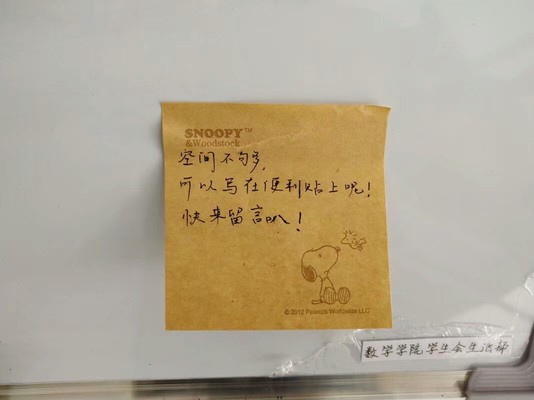 SNOOPY™
&Woodstock
空间不够多,
可以写在便利贴上呢!
快来留言叭!
©2012 Peanuts Worldwide LLC
数学学院学生会生活部